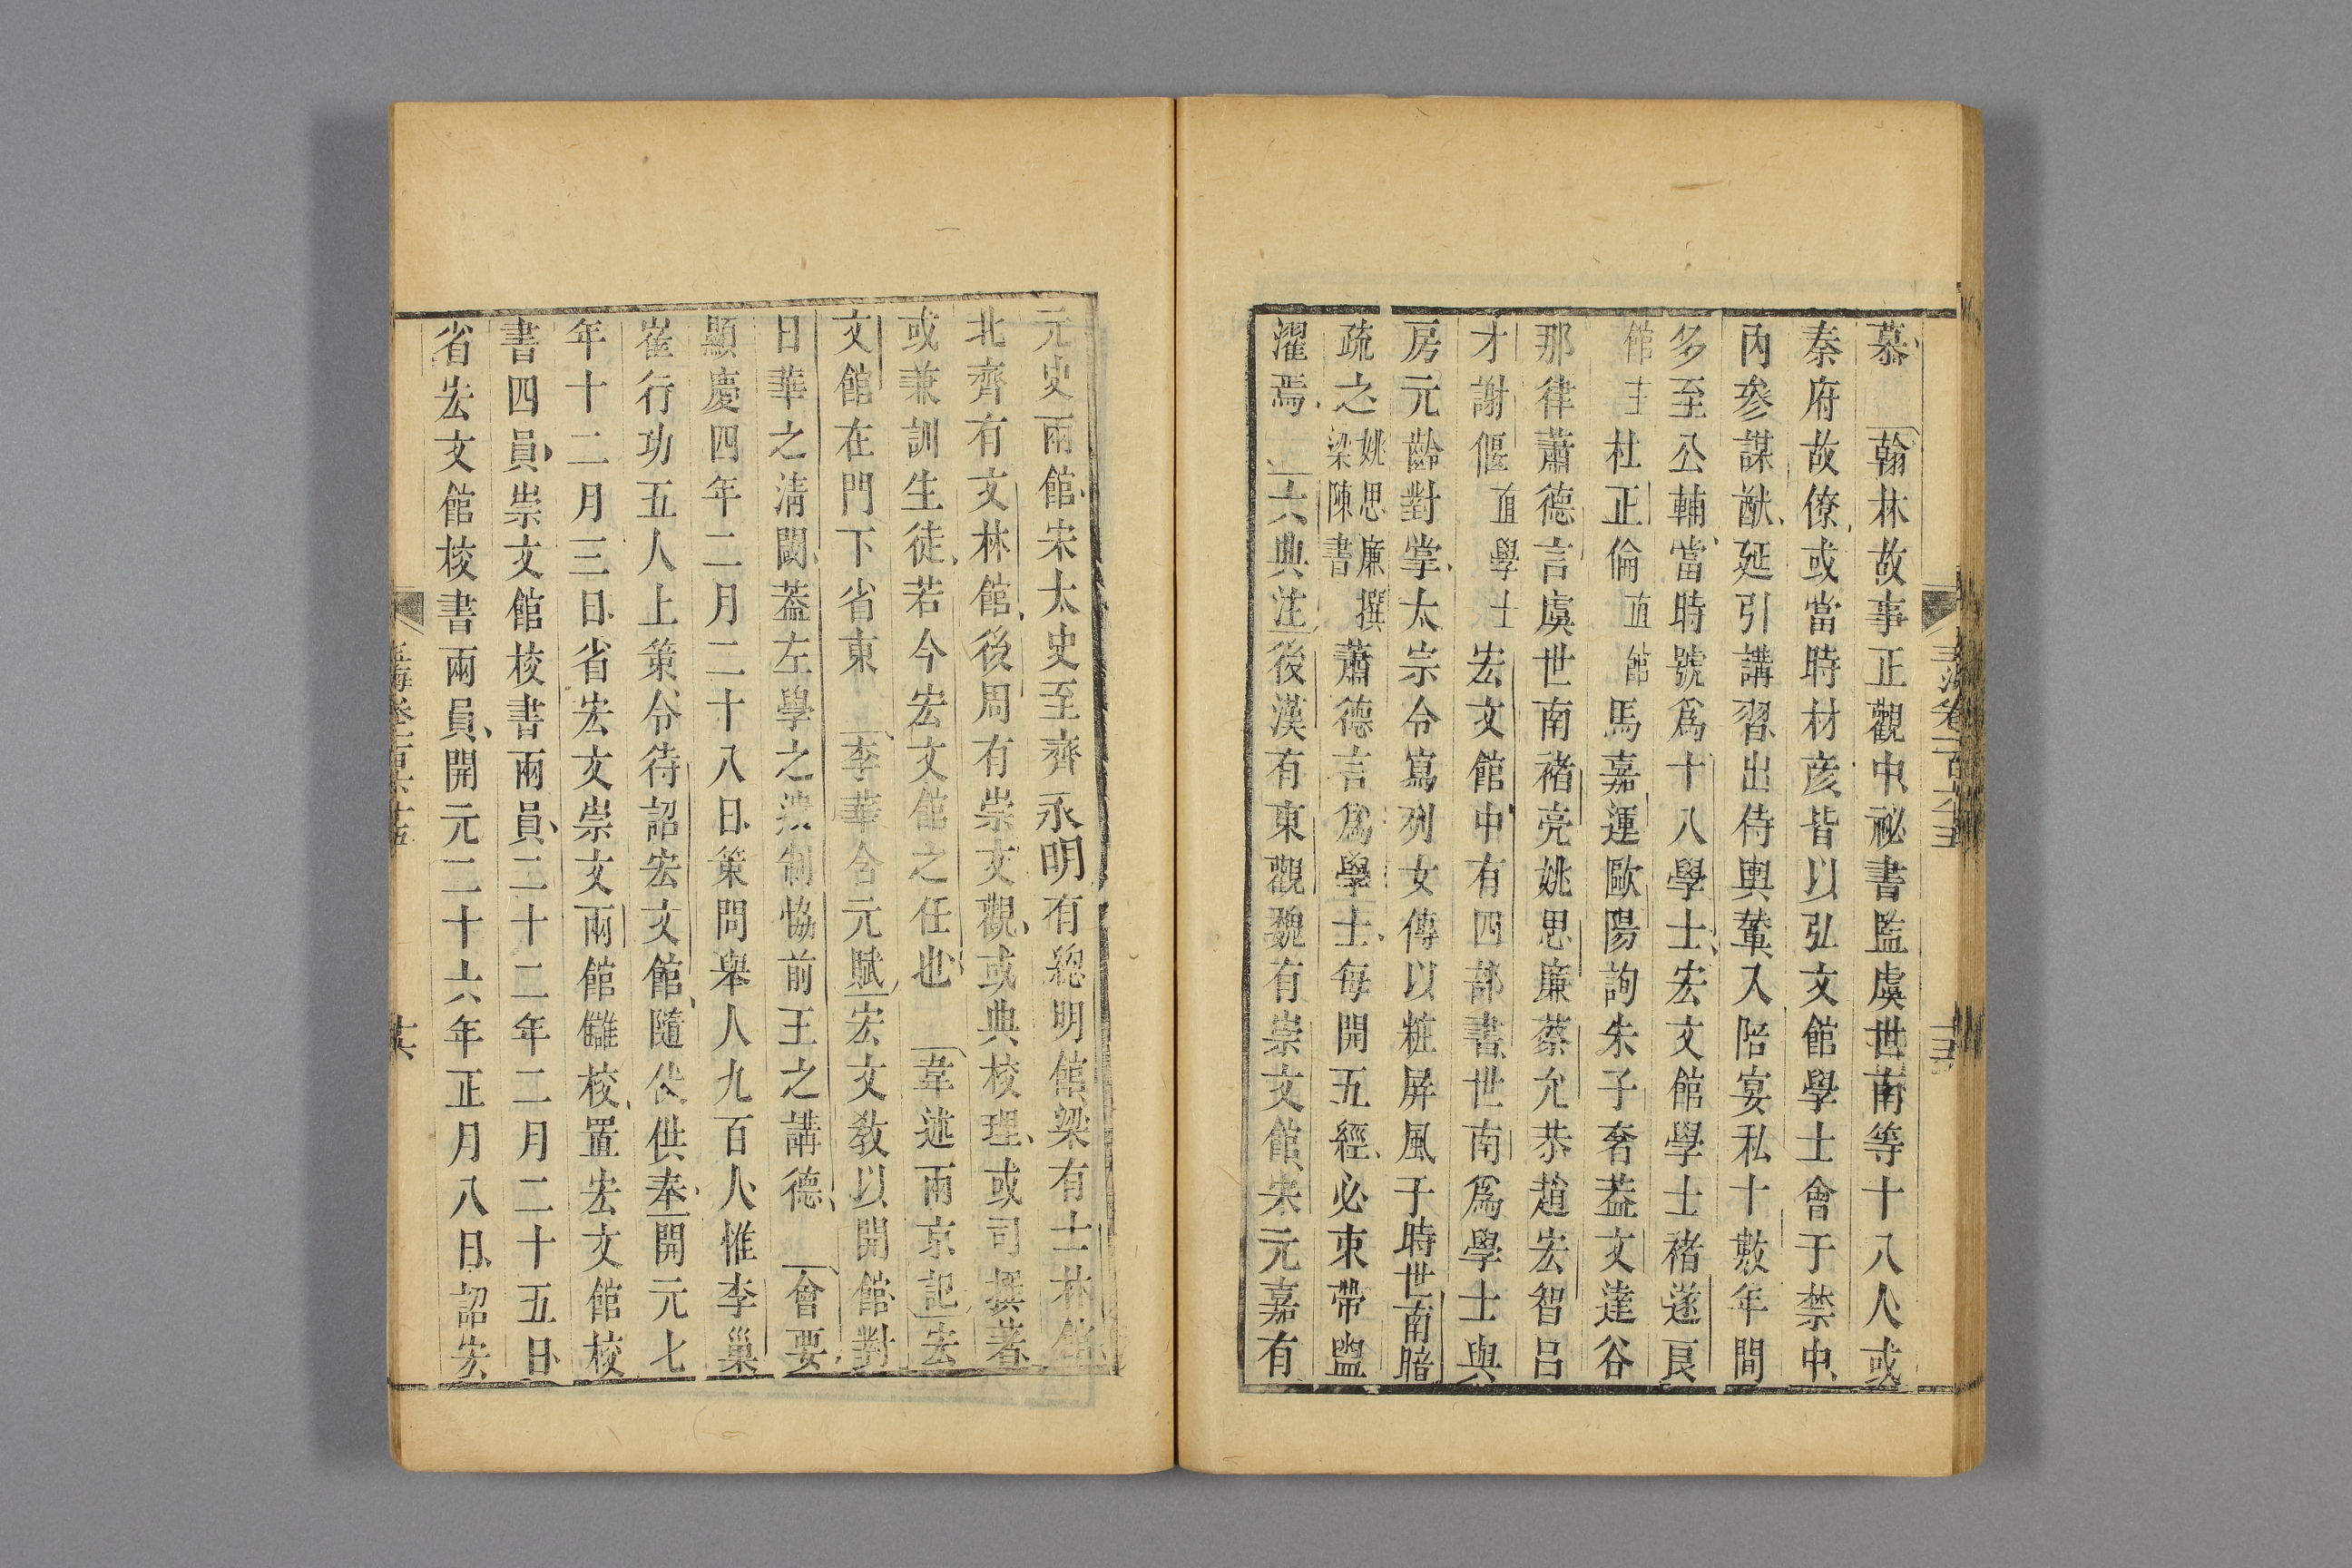 慕翰林故事正觀中祕書監虞世南等十八人或
秦府故僚或當時材彦皆以弘文館學士會于禁中
內參謀猷延引講習出侍輿輦入陪宴私十數年間
多至公輔當時號爲十八學士宏文館學士褚遂良
館主杜正倫直館馬嘉運歐陽詢朱子奢葢文達谷
那律蕭德言虞世南褚亮姚思廉蔡允恭趙宏智呂
才謝偃直學士宏文館中有四部書世南爲學士與
房元齡對掌太宗令寫列女傳以粧屏風于時世南暗
疏之姚思廉撰梁陳書蕭德言爲學士每開五經必束帶盥
濯焉六典注後漢有東觀魏有崇文館宋元嘉有
元史兩館宋太史至齊永明有總明館梁有士林館
北齊有文林館後周有崇文觀或典校理或司撰著
或兼訓生徒若今宏文館之任也韋述兩京記宏
文館在門下省東李華含元賦宏文敎以開館對
日華之清閟葢左學之遺制恊前王之講德會要
顯慶四年二月二十八日策問舉人九百人惟李巢
崔行功五人上策令待詔宏文館隨仗供奉開元七
年十二月三日省宏文崇文兩館讎校置宏文館校
書四員崇文館校書兩員二十二年二月二十五日
省宏文館校書兩員開元二十六年正月八日詔宏